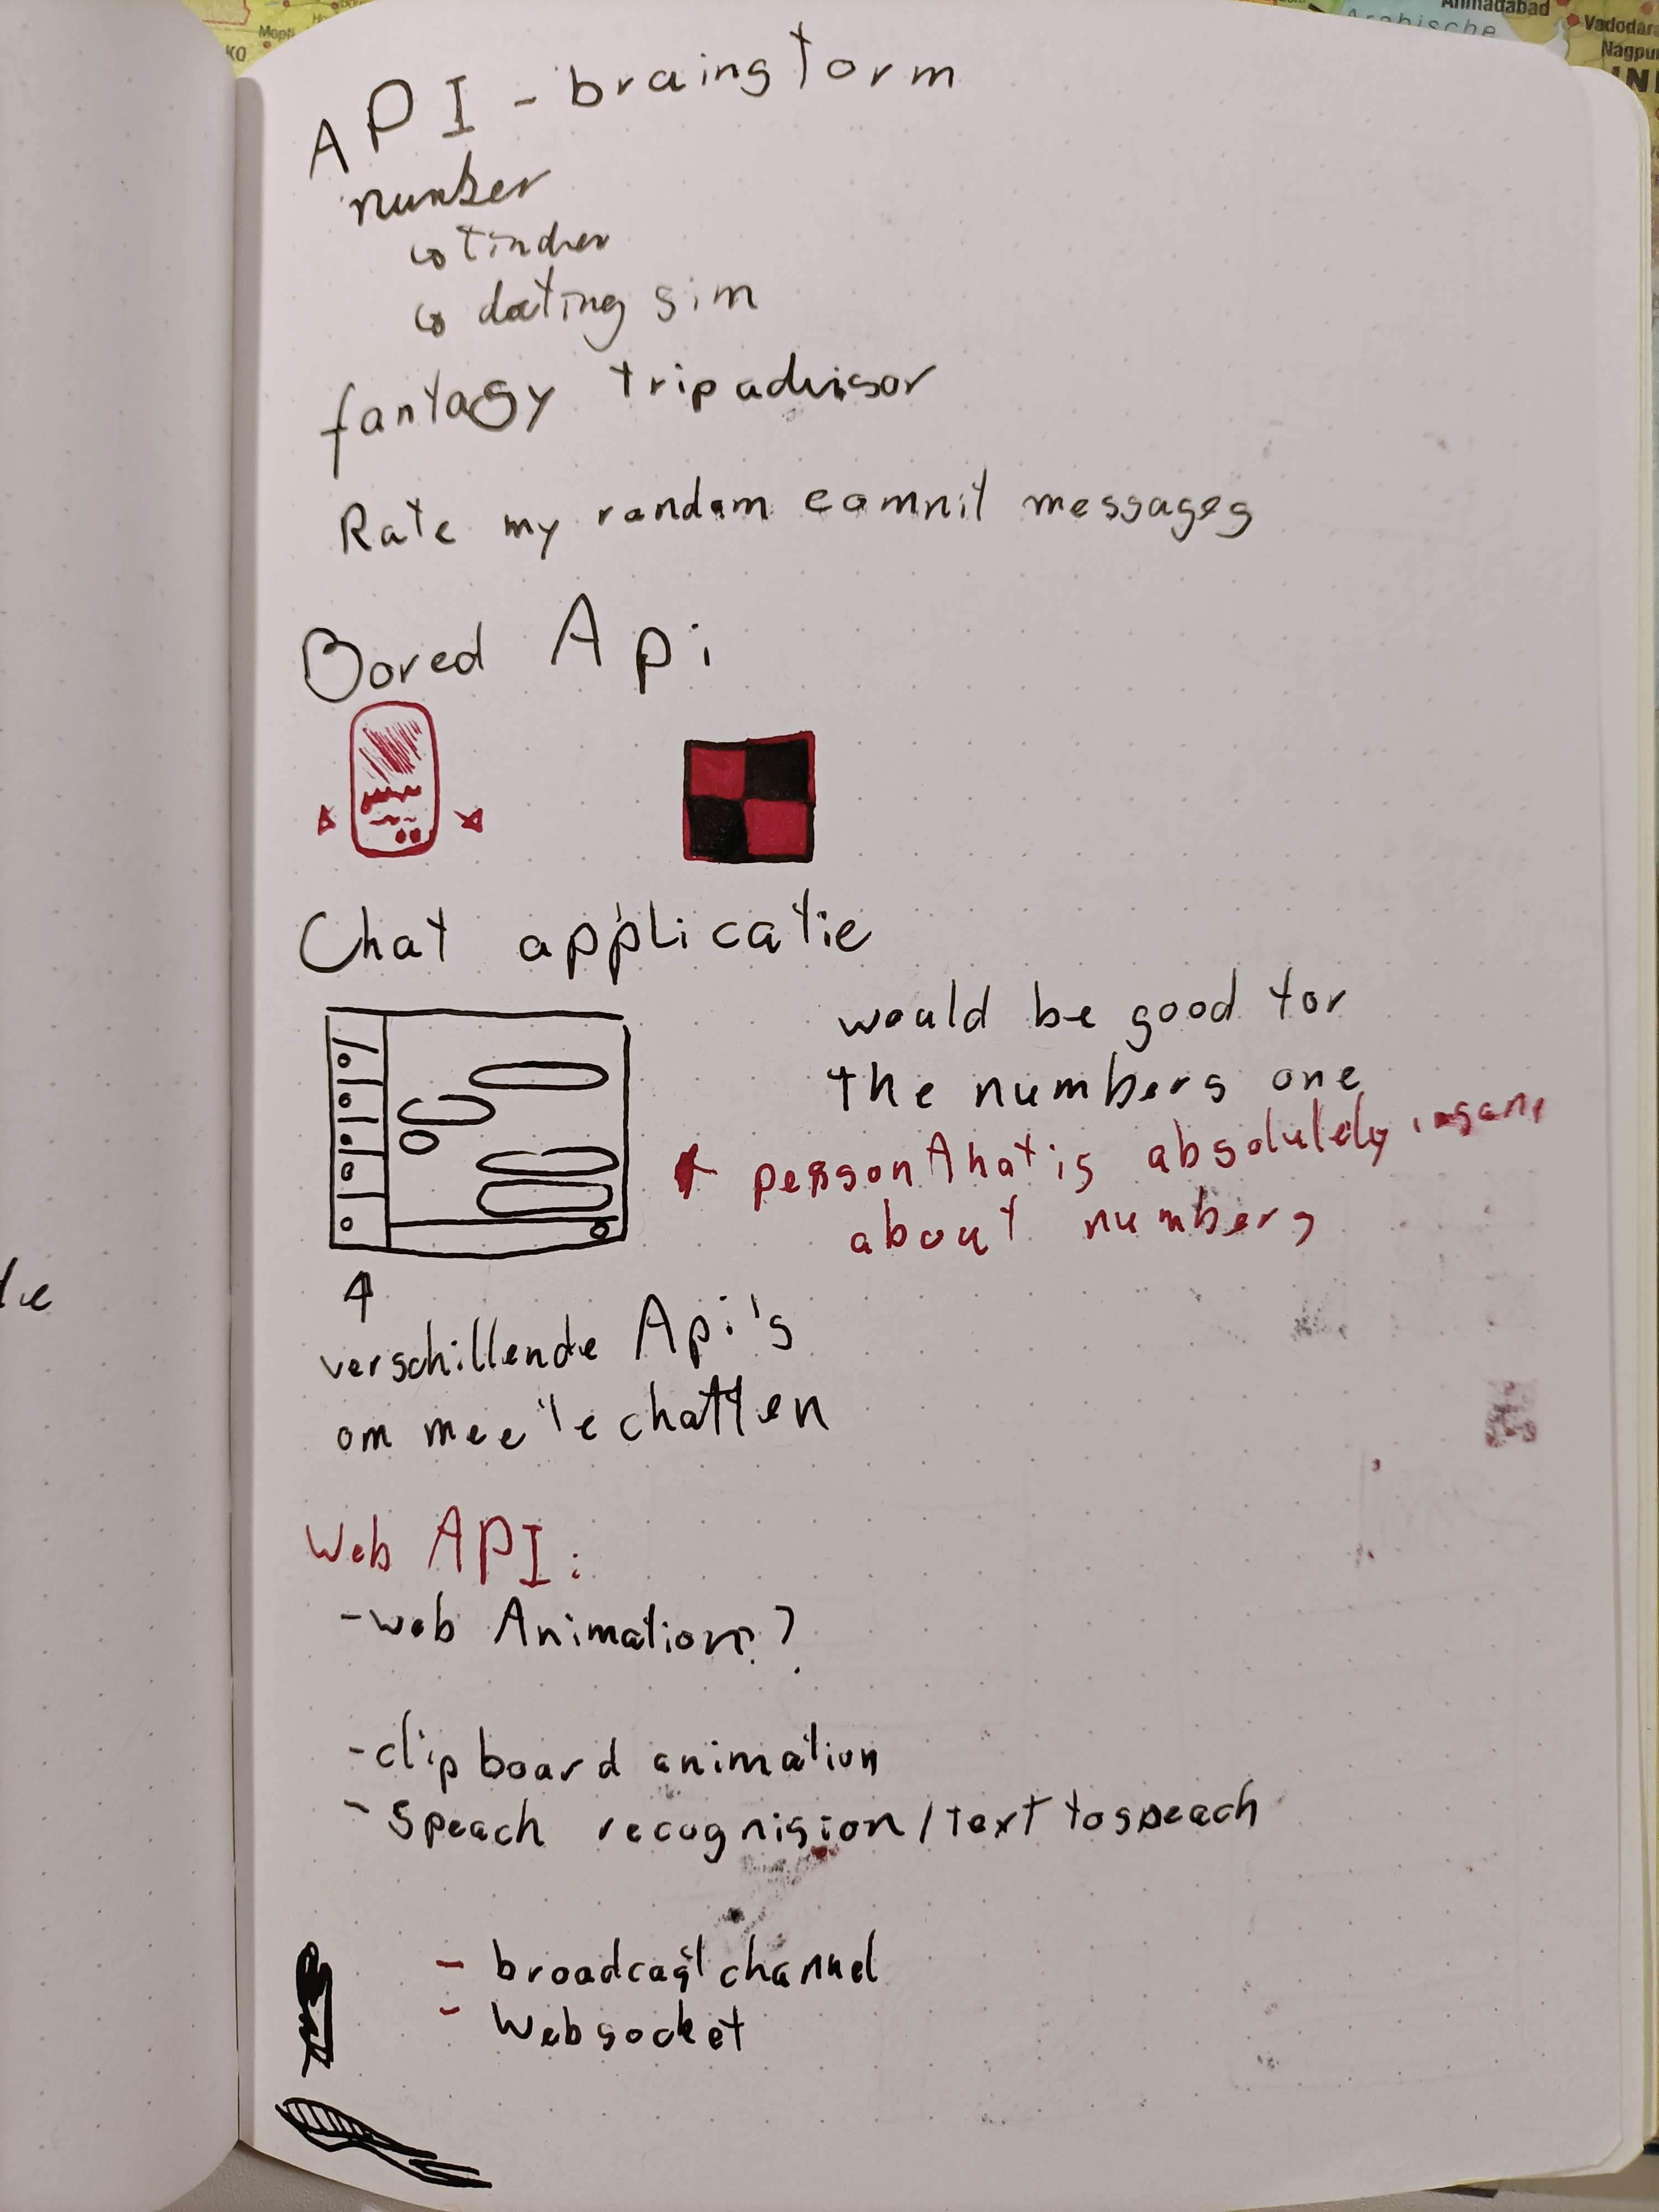 Mopti
KO
Ahmadabad
Arabische
Vadodar
Nagpu
IN
API - brainstorm
number
↳ tinder
↳ dating sim
fantasy tripadvisor
Rate my random commit messages
Bored Api
Chat applicatie
would be good for
the numbers one
person that is absolutely insane
about numbers
verschillende Api's
om mee te chatten
Web API:
- web Animations?
- clipboard animation
- speach recognision/text to speach
- broadcast channel
- Websocket